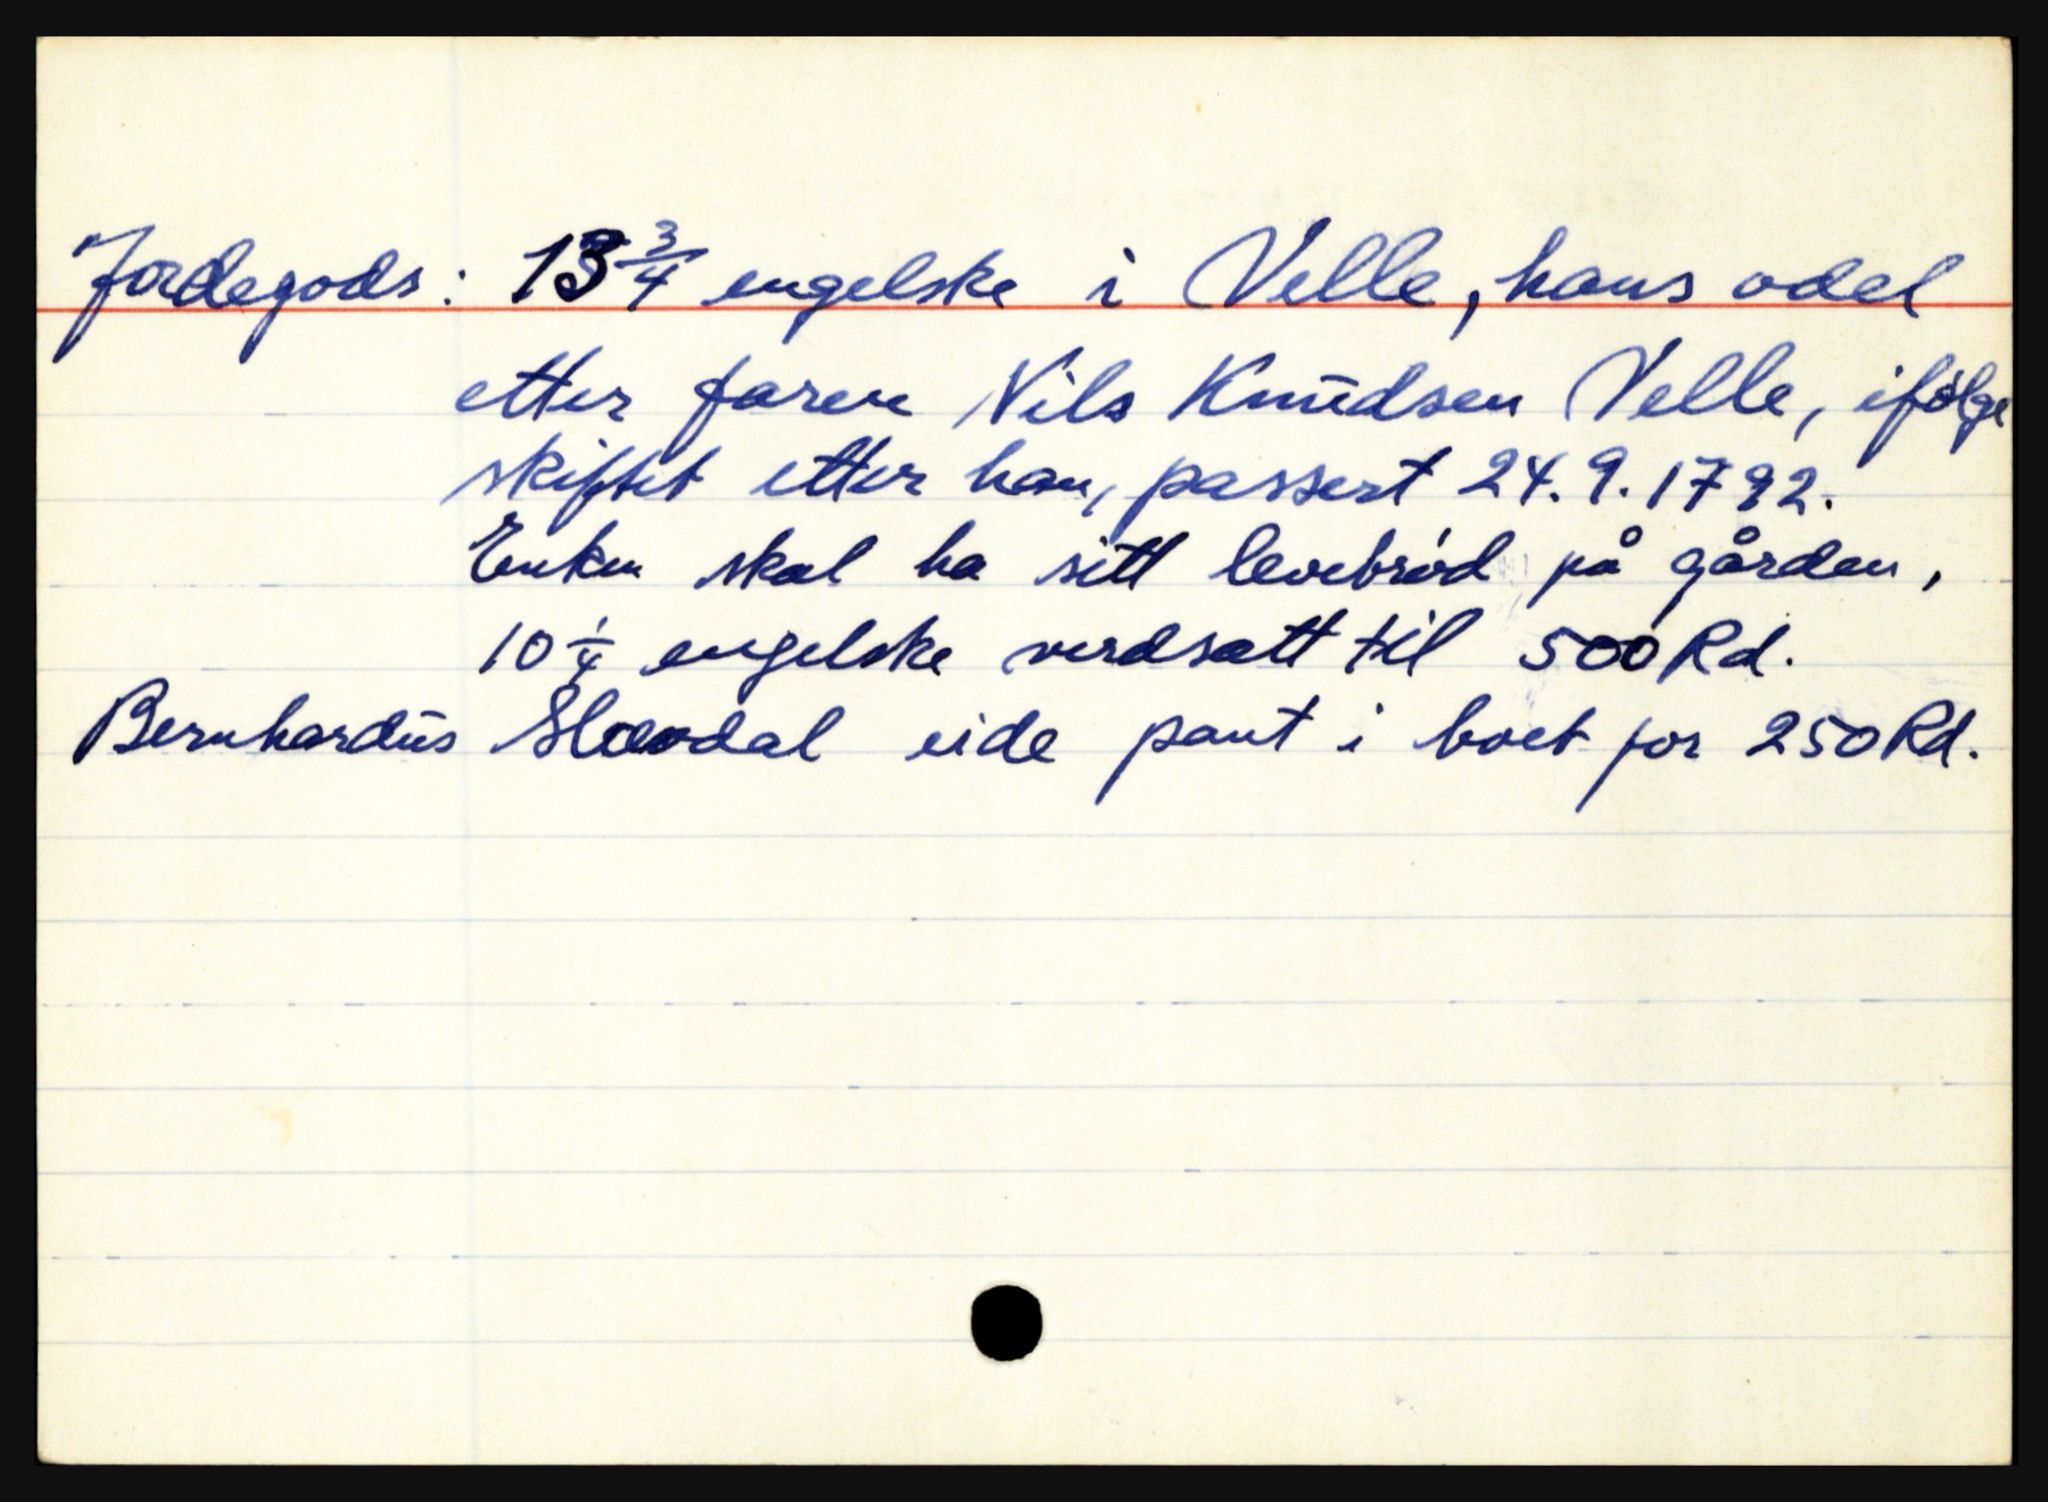 Jordegods: 13 3/4 engelske i Velle, hans odel
etter faren Nils Knudsen Velle, ifølge
skiftet etter han, passert 24.9.1792.
Enken skal ha sitt levebrød på gården,
10 1/4 engelske verdsatt til 500 Rd.
Bernhardus eide pant i boet for 250 Rd.